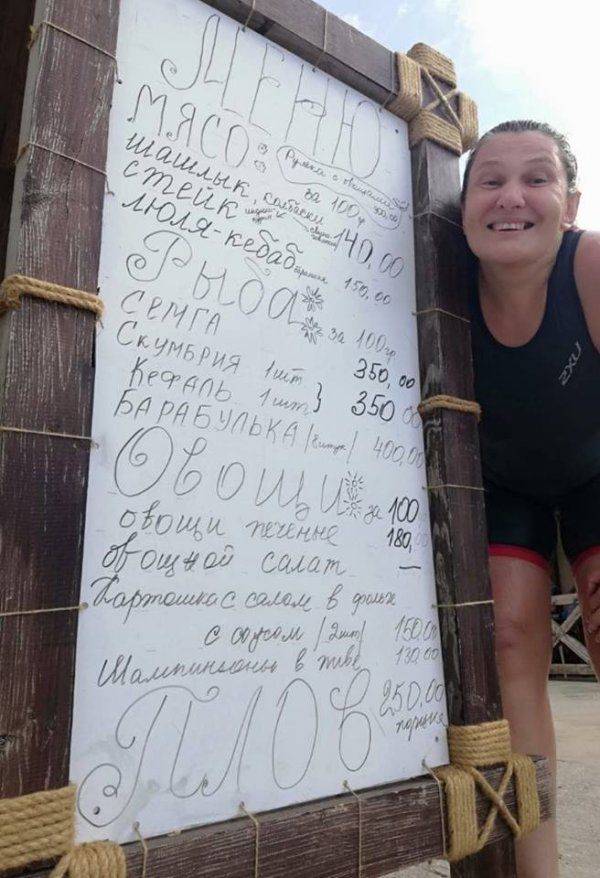 МЕНЮ
МЯСО: за 100г
Рулька с овощами
шашлык, колбаски 140,00
стейк
люля-кебаб баранина 150,00
Рыба за 100гр
СЕМГА 350,00
СКУМБРИЯ 1шт
КЕФАЛЬ 1шт } 350 00
БАРАБУЛЬКА /8штук/ 400,00
Овощи за 100
овощи печеные 180,
овощной салат —
Картошка с салом в фольге
с соусом /2шт/ 150,00
Шампиньоны в пиве 130,00
ПЛОВ 250,00
порция
2XU